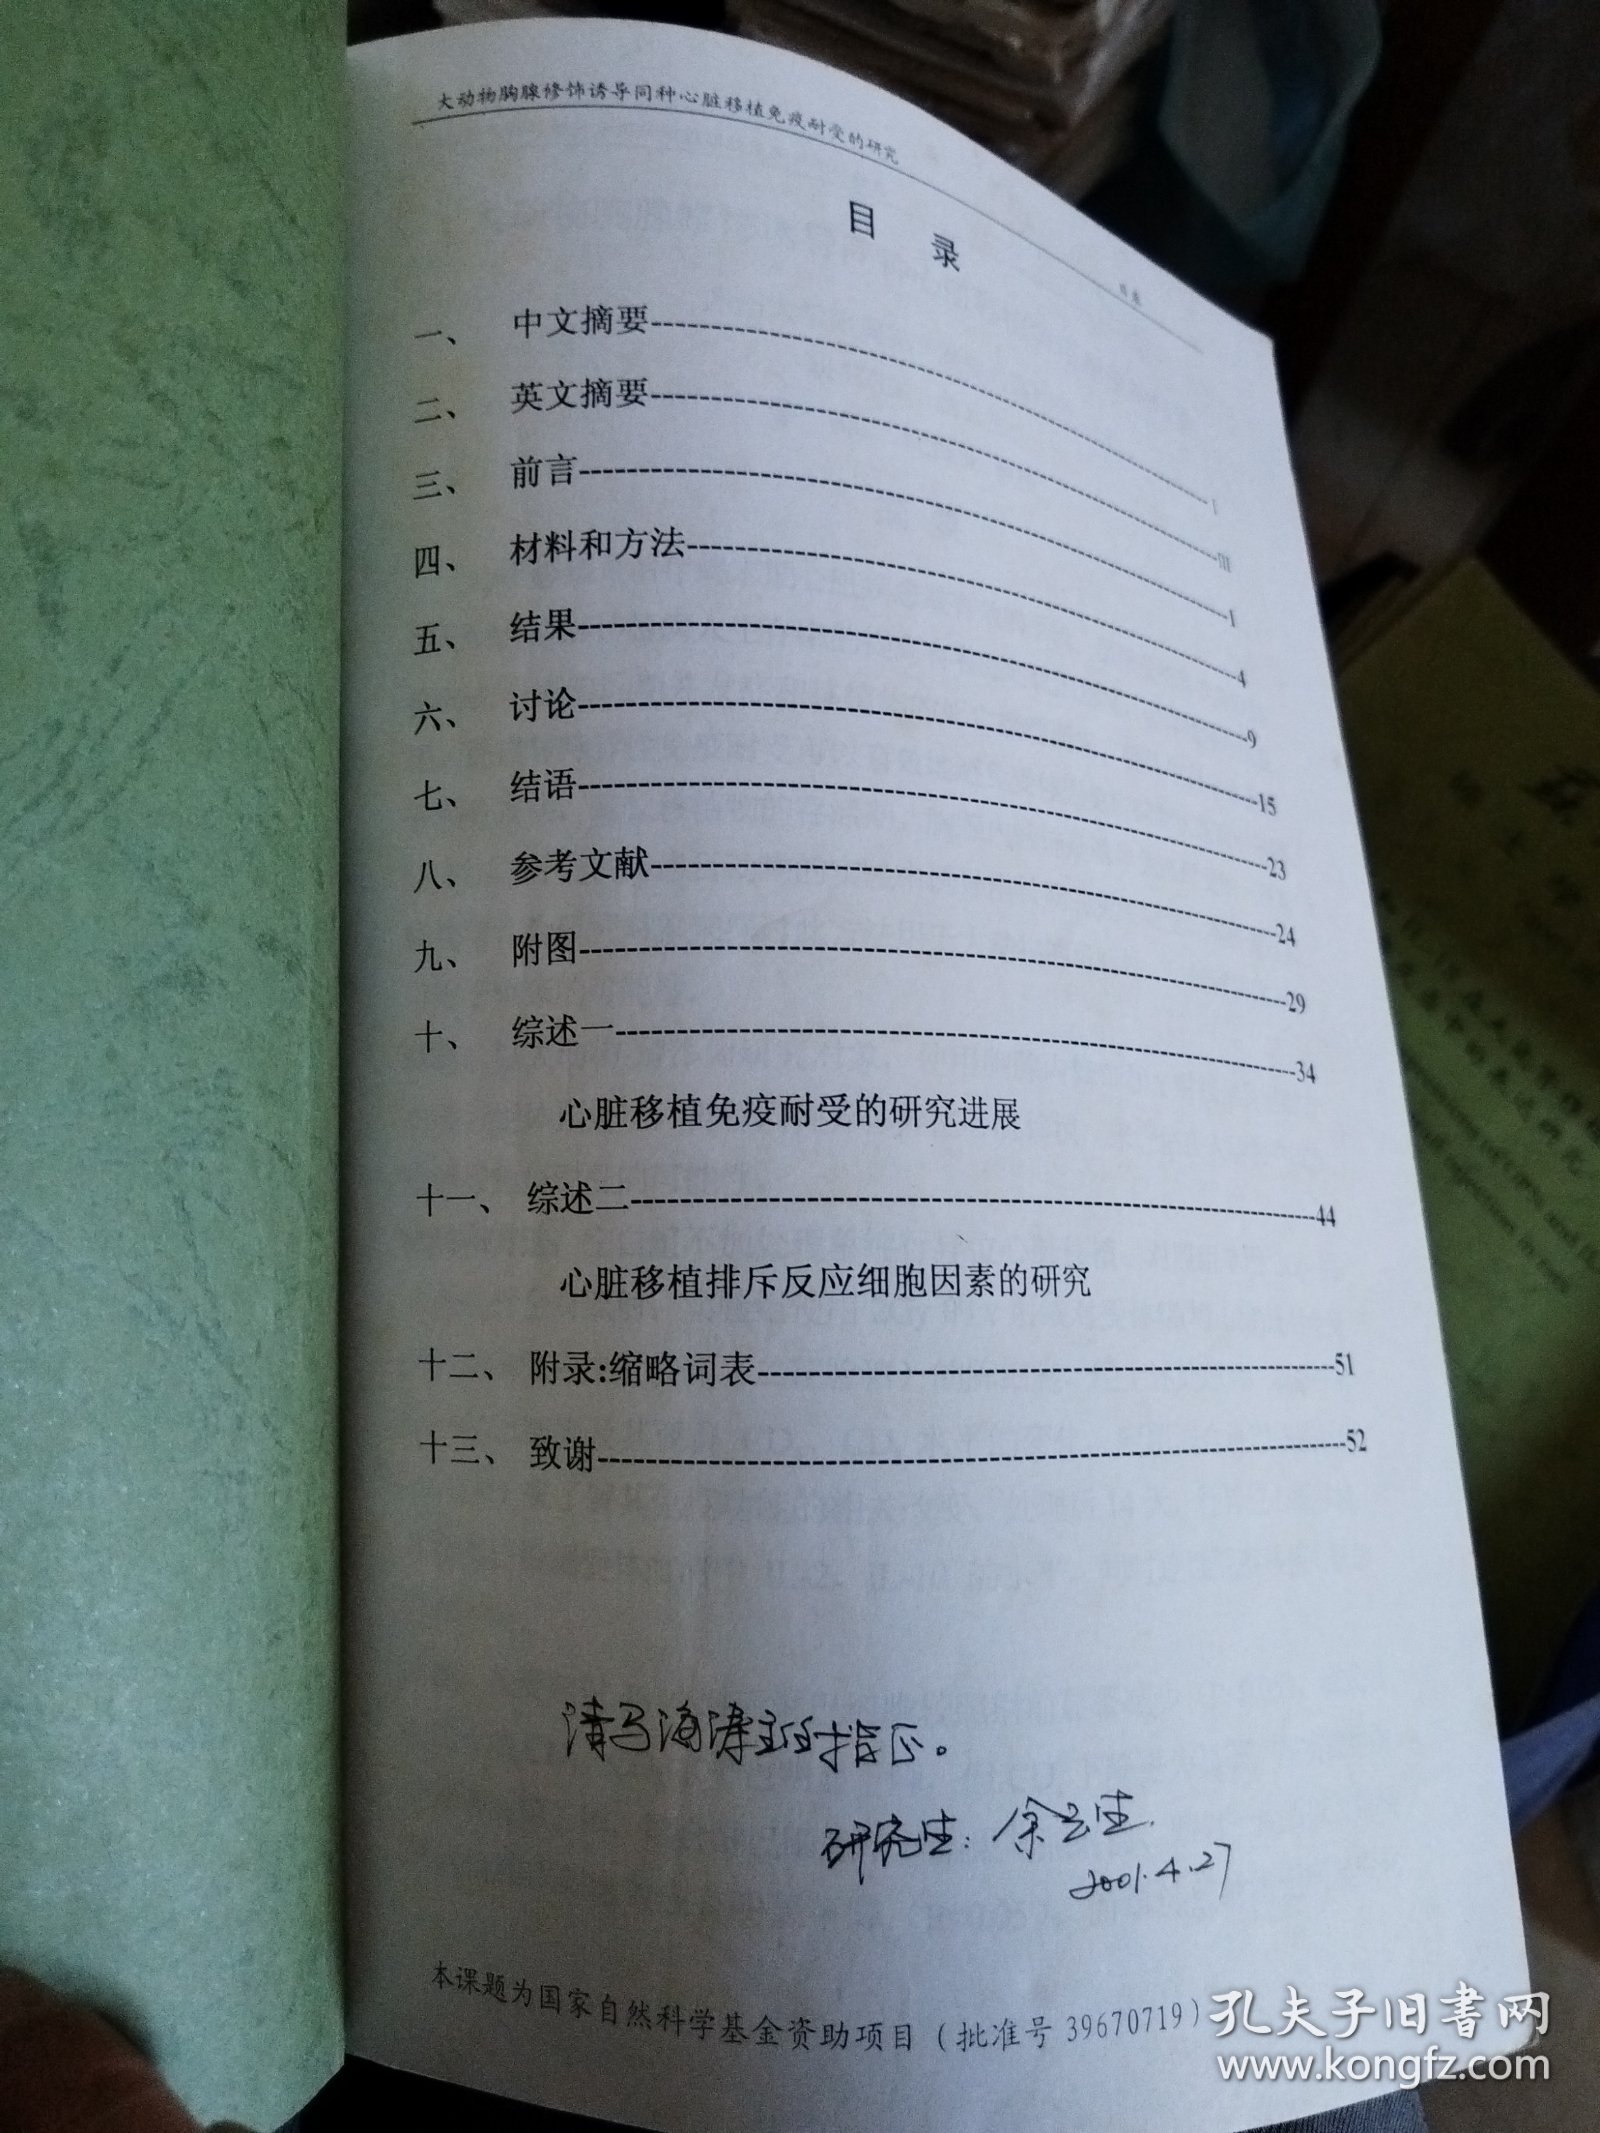 大动物胸腺修饰诱导同种心脏移植免疫耐受的研究
目录
目 录
一、 中文摘要 I
二、 英文摘要 III
三、 前言 1
四、 材料和方法 4
五、 结果 9
六、 讨论 15
七、 结语 23
八、 参考文献 24
九、 附图 29
十、 综述一 34
心脏移植免疫耐受的研究进展
十一、 综述二 44
心脏移植排斥反应细胞因素的研究
十二、 附录:缩略词表 51
十三、 致谢 52
请马海涛主任指正。
研究生: 余云生
2001.4.27
本课题为国家自然科学基金资助项目（批准号 39670719）
孔夫子旧书网
www.kongfz.com